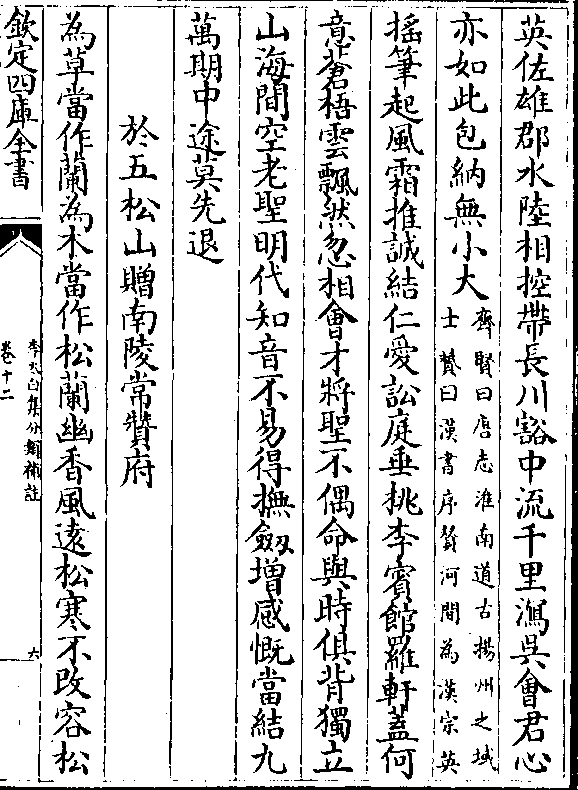 英佐雄郡水陸相控帶長川豁中流千里瀉吳會君心
亦如此包納無小大
齊賢曰唐志淮南道古揚州之域
士贇曰漢書序贊河間為漢宗英
揺筆起風霜推誠結仁愛訟庭垂桃李賓館羅軒蓋何
意蒼梧雲飄然忽相會才將聖不偶命與時俱背獨立
山海間空老聖明代知音不易得撫劒増感慨當結九
萬期中途莫先退
於五松山贈南陵常贊府
為草當作蘭為木當作松蘭幽香風遠松寒不改容松
欽定四庫全書
李太白集分類補註
卷十二
六